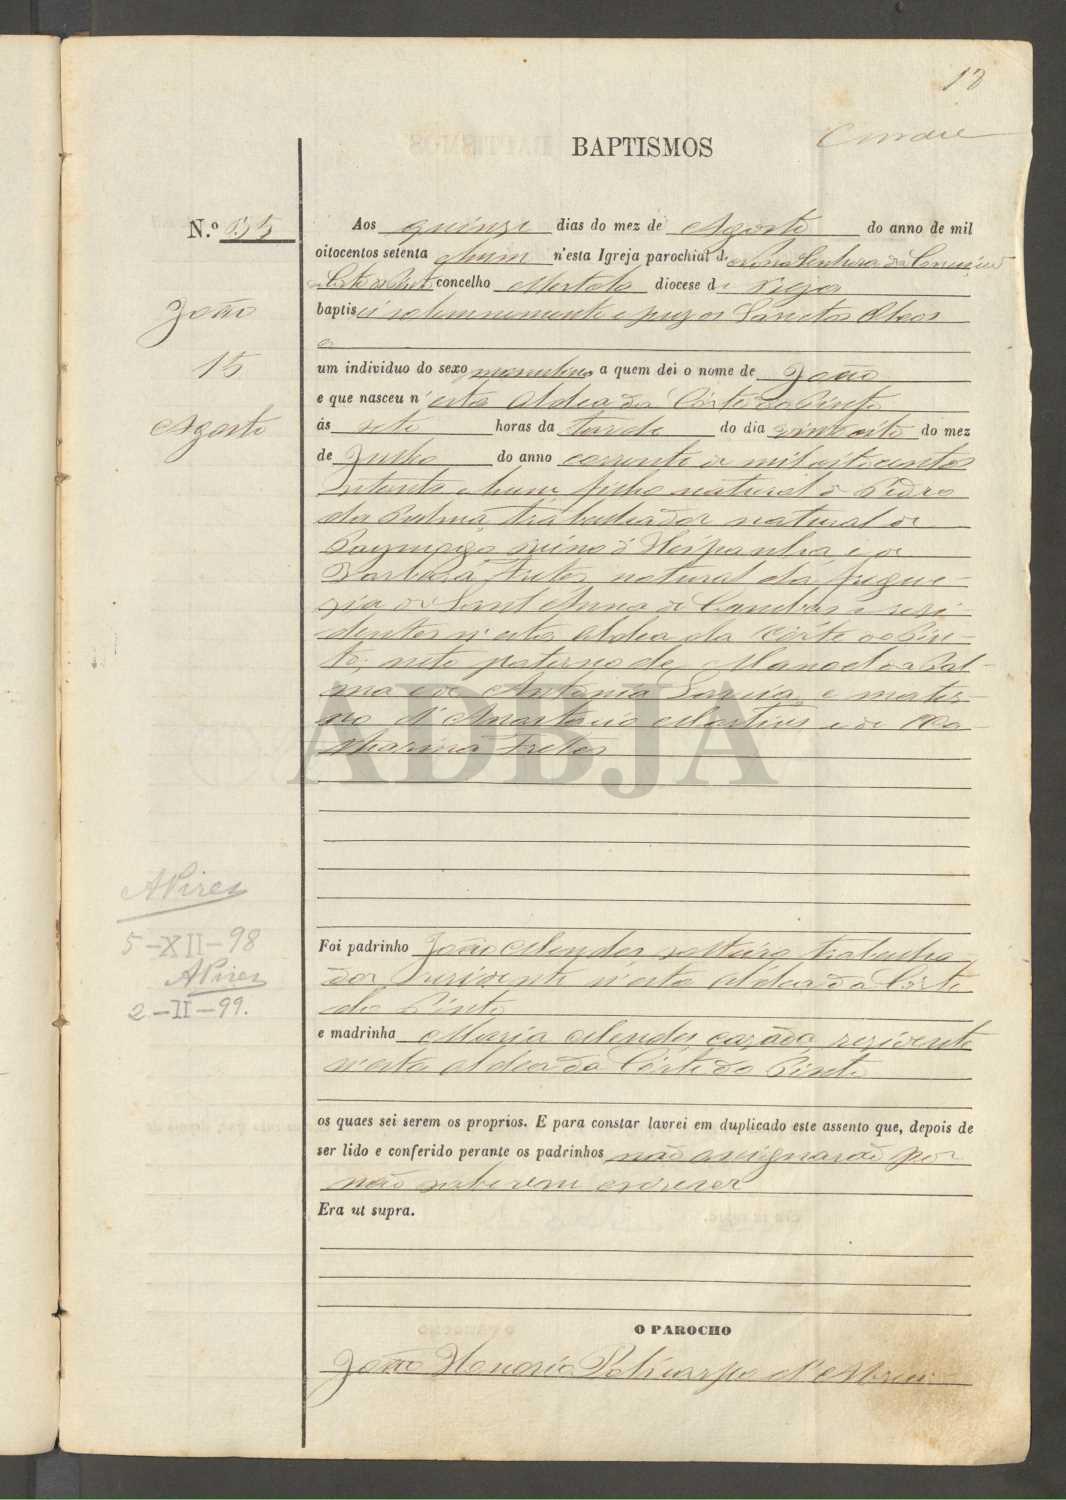 18
BAPTISMOS
N.º
Aos quinze dias do mez de Agosto do anno de mil
oitocentos setenta e hum n'esta Igreja parochial de Nossa Senhora da Conceição
concelho Mertola diocese de Beja
João
baptisei solemnemente e puz os Sanctos Oleos
15
um individuo do sexo masculino a quem dei o nome de João
e que nasceu n'esta Aldea da Côrte do Pinto
Agosto
ás sete horas da tarde do dia vinte oito do mez
de Julho do anno corrente de mil oitocentos
setenta e hum, filho natural de Pedro
da Palma, trabalhador natural de
Paymogo, reino d'Hespanha, e de
Barbara Fretes, natural da fregue-
zia de Sant'Anna de Cambas e resi-
dentes n'esta Aldea da Côrte do Pin-
to; neto paterno de Manoel da Pal-
ma e de Antonia Garcia, e mater-
no d'Anastacio Martins e de Ca-
tharina Fretes
ADBJA
APires
5-XII-98
APires
2-II-99.
Foi padrinho João Mendes solteiro trabalha
dor residente n'esta Aldea da Côrte
do Pinto
e madrinha Maria Mendes cazada rezidente
n'esta Aldea da Côrte do Pinto
os quaes sei serem os proprios. E para constar lavrei em duplicado este assento que, depois de
ser lido e conferido perante os padrinhos não assignarão por
não saberem escrever
Era ut supra.
O PAROCHO
João Honorio Policarpo d'Abreu